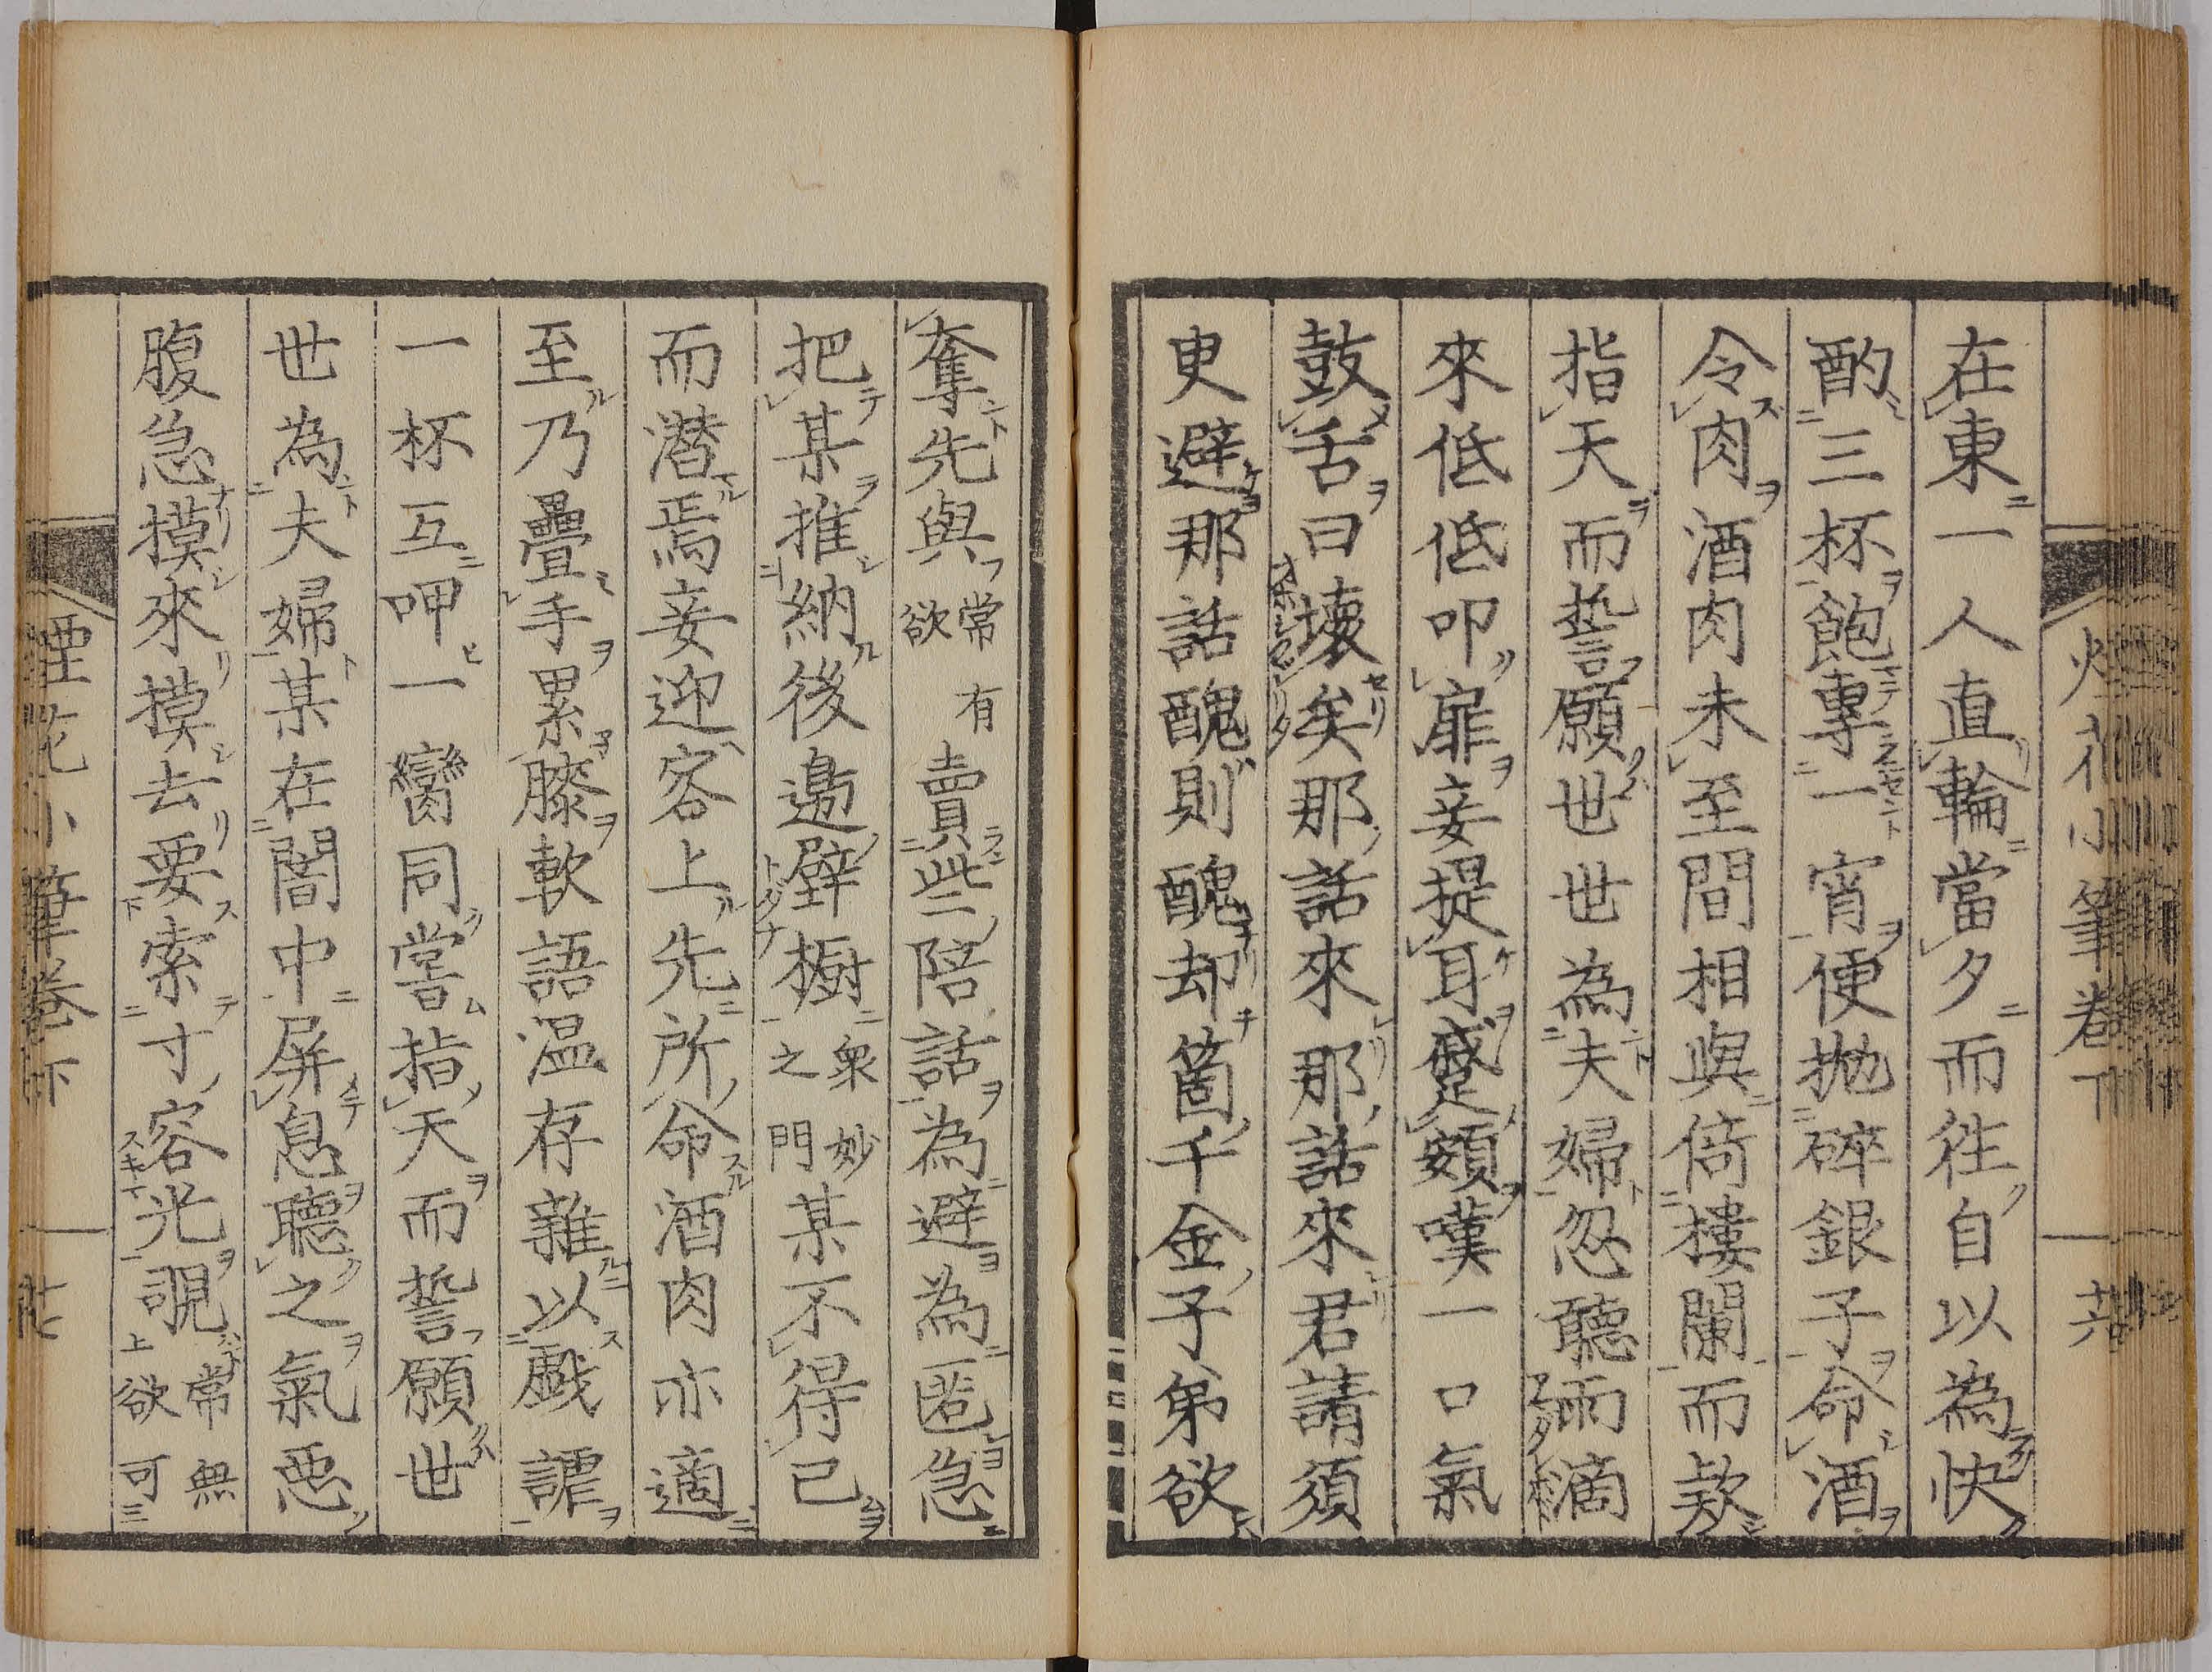 在東一人直輪當夕而往自以為快
酌三杯飽專一宵便拋碎銀子命酒
令肉酒肉未至間相與倚樓闌而欵
指天而誓願世世為夫婦忽聽雨滴
來低低叩扉妾提耳蹙頞嘆一口氣
鼓舌曰壞矣那話來那話來君請須
更避那話醜則醜却箇千金子弟欲
奪先與常有欲賣些陪話為避為匿急
把某推納後邊壁櫥衆妙之門某不得已
而潜焉妾迎客上先所命酒肉亦適
至乃疊手累膝軟語温存雜以戲謔
一杯互呷一臠同嘗指天而誓願世
世為夫婦某在闇中屏息聽之氣悪
腹急摸來摸去要索寸容光覗常無欲可
烟花小筆卷下